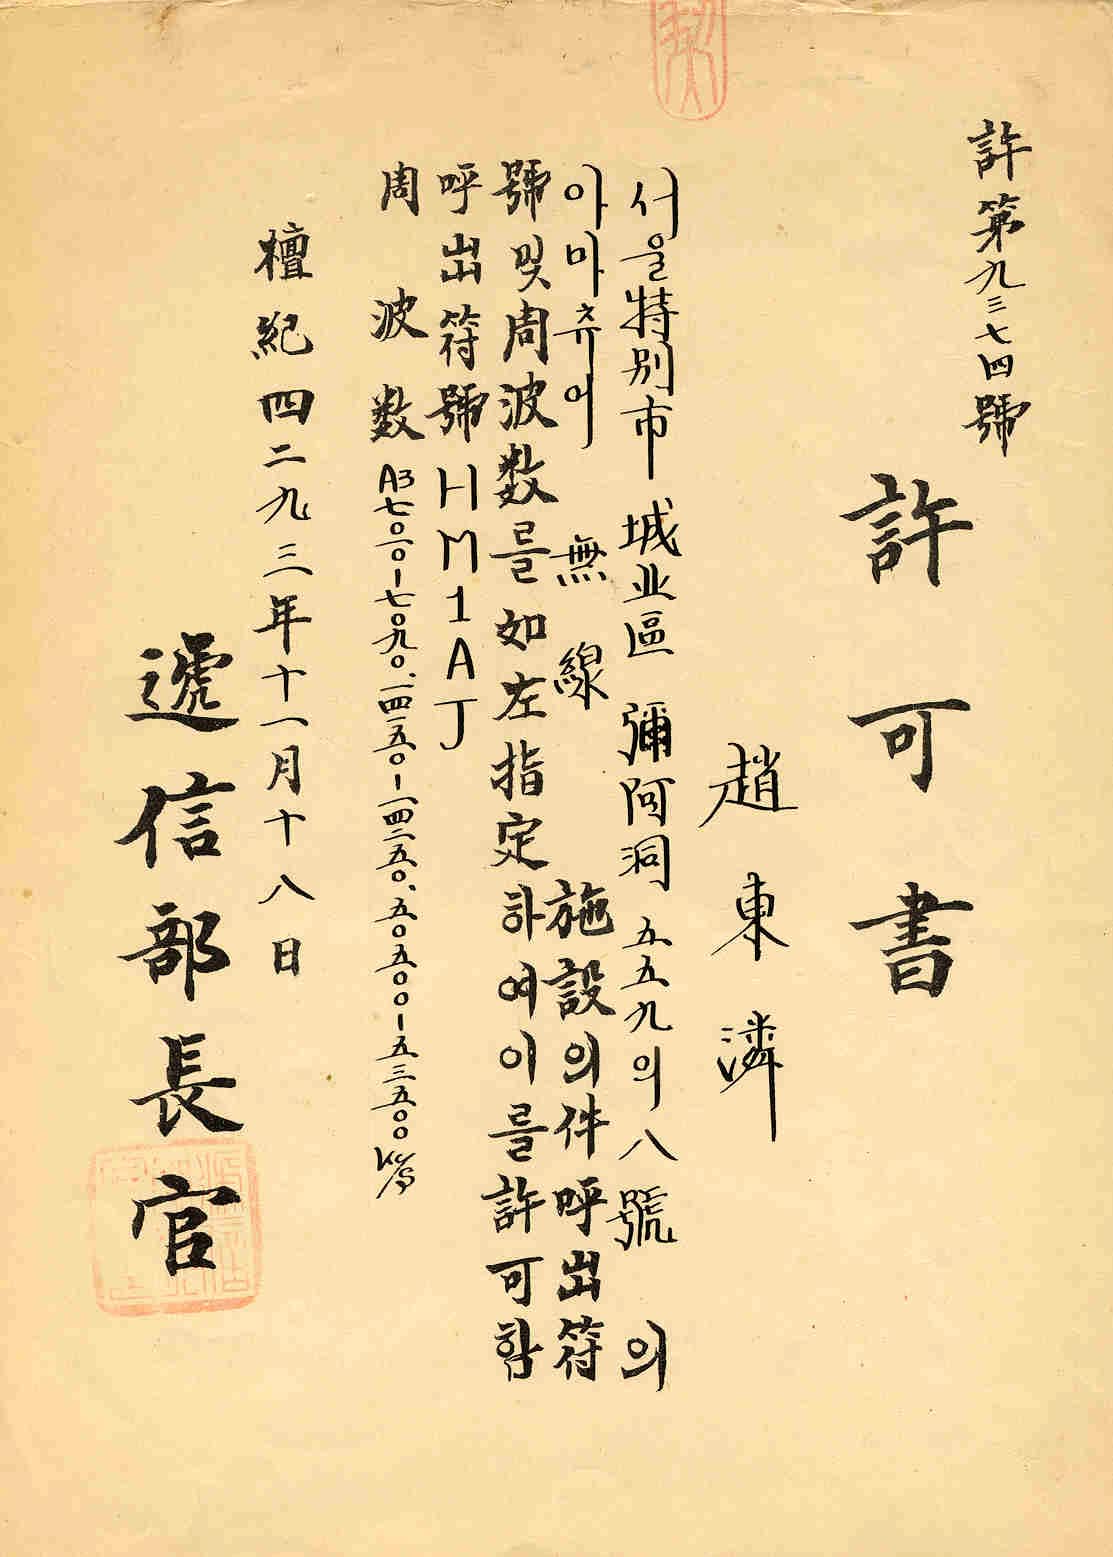 許第九三七四號
許可書
趙東潾
서울特別市 城北區 彌阿洞 五五九의八號 의
아마츄어 無線 施設의件呼出符
號및周波数를如左指定하여이를許可함
呼出符號 HM1AJ
周波数 A3 七〇〇〇-七〇九〇、一四一五〇-一四二五〇、五〇五〇〇-五三五〇〇
檀紀四二九三年十一月十八日
遞信部長官